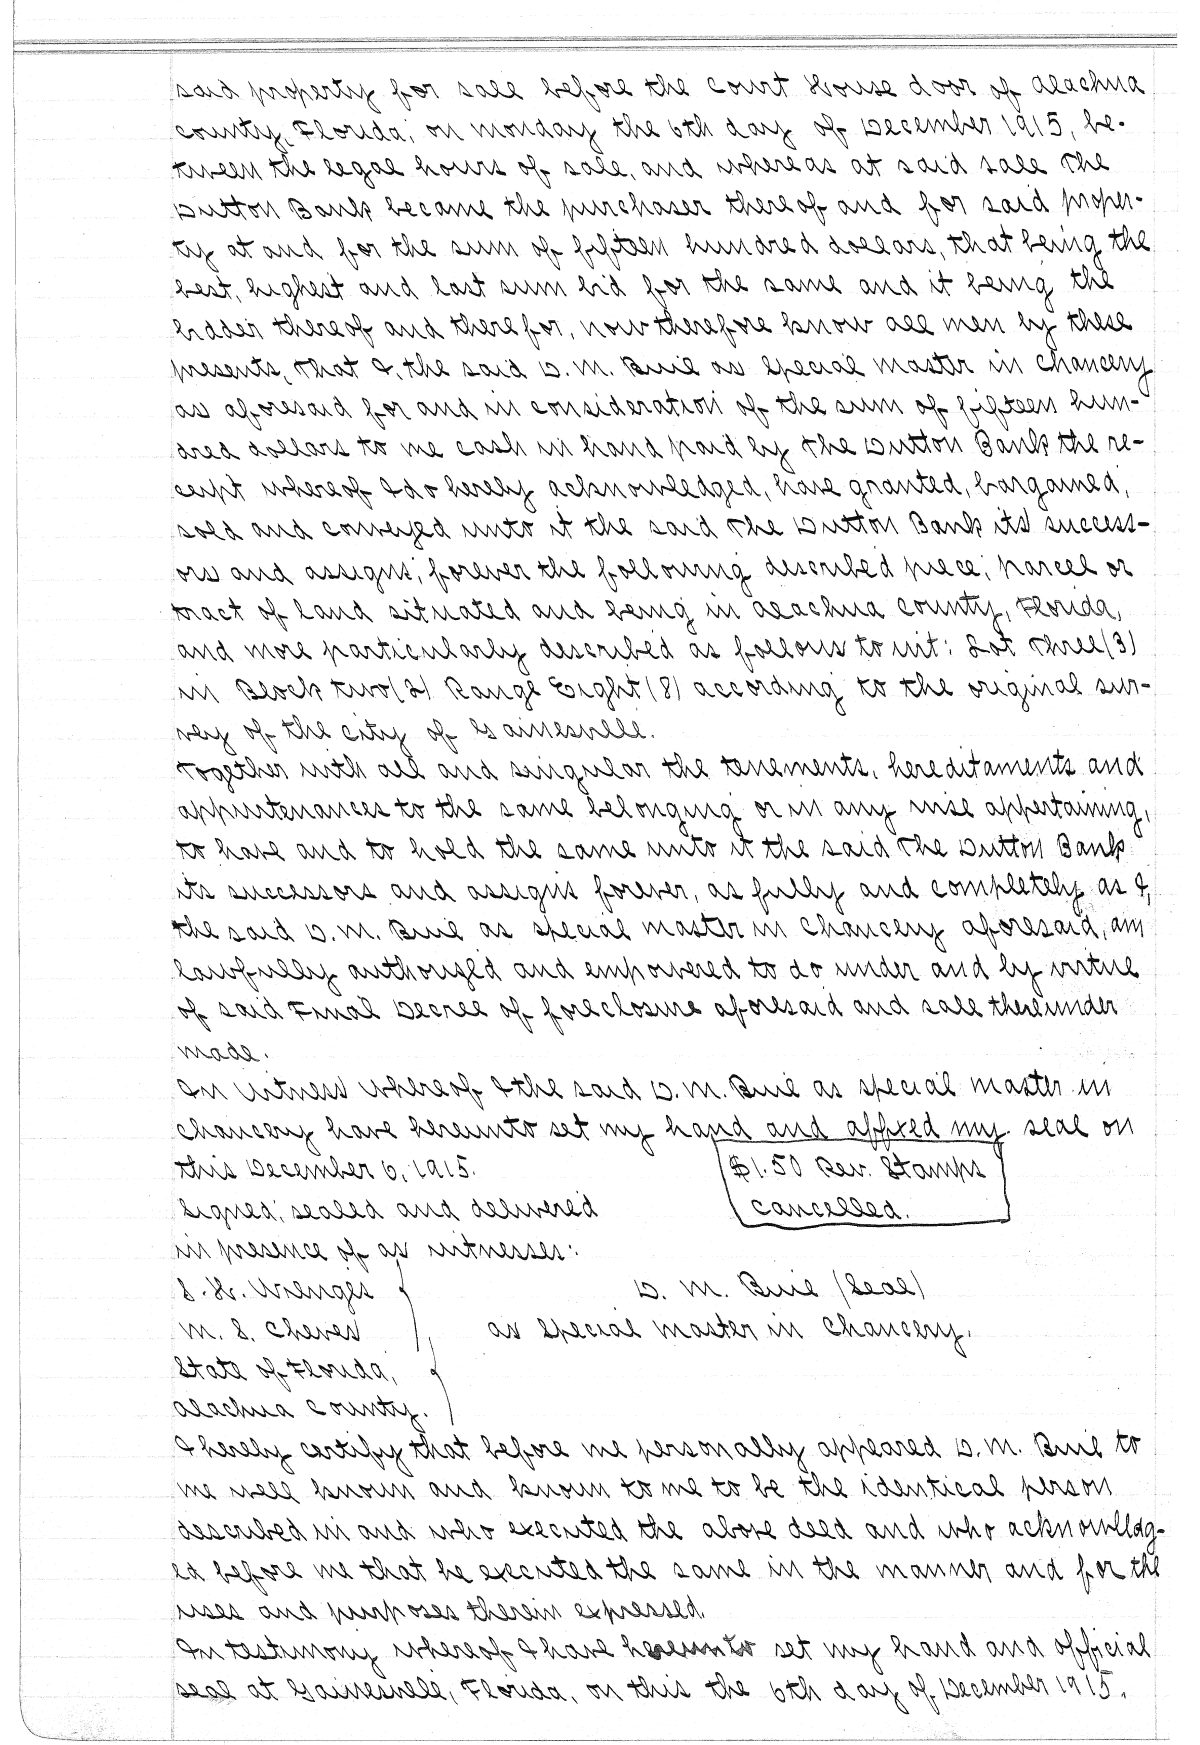 said property for sale before the Court House door of Alachua
county, Florida, on monday the 6th day of December 1915, be-
tween the legal hours of sale, and whereas at said sale The
Dutton Bank became the purchaser thereof and for said proper-
ty at and for the sum of fifteen hundred dollars, that being the
best, highest and last sum bid for the same and it being the
bidder thereof and therefor, now therefore know all men by these
presents, that I, the said D. M. Buie as special master in chancery
as aforesaid for and in consideration of the sum of fifteen hun-
dred dollars to me cash in hand paid by The Dutton Bank the re-
ceipt whereof I do hereby acknowledged, have granted, bargained,
sold and conveyed unto it the said The Dutton Bank its success-
ors and assigns, forever the following described piece, parcel or
tract of land situated and being in Alachua county, Florida,
and more particularly described as follows to wit: Lot Three (3)
in Block two (2) Range Eight (8) according to the original sur-
vey of the city of Gainesville.
Together with all and singular the tenements, hereditaments and
appurtenances to the same belonging or in any wise appertaining,
to have and to hold the same unto it the said The Dutton Bank
its successors and assigns forever, as fully and completely as I,
the said D. M. Buie as special master in chancery aforesaid, am
lawfully authorized and empowered to do under and by virtue
of said Final Decree of foreclosure aforesaid and sale thereunder
made.
In Witness whereof I the said D. M. Buie as special master in
chancery have hereunto set my hand and affixed my seal on
this December 6, 1915.
$1.50 Rev. Stamps
cancelled.
Signed, sealed and delivered
in presence of as witnesses:
S. H. Wienges
D. M. Buie (Seal)
M. S. Cheves
as special master in chancery.
State of Florida,
Alachua County.
I hereby certify that before me personally appeared D. M. Buie to
me well known and known to me to be the identical person
described in and who executed the above deed and who acknowledg-
ed before me that he executed the same in the manner and for the
uses and purposes therein expressed.
In testimony whereof I have hereunto set my hand and official
seal at Gainesville, Florida, on this the 6th day of December 1915.